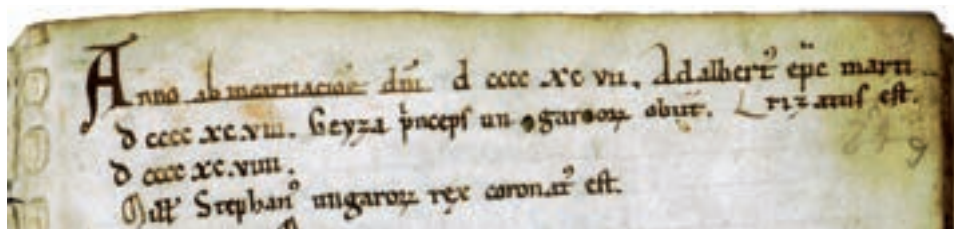 Anno ab incarnacione dni. d cccc xc vii. Adalbert' epc marti
d cccc xc.viii. Geyza pnceps un garoꝝ obiit. rizatus est.
d cccc xc.viiii.
Mill' Stephan' ungaroꝝ rex coronat' est.